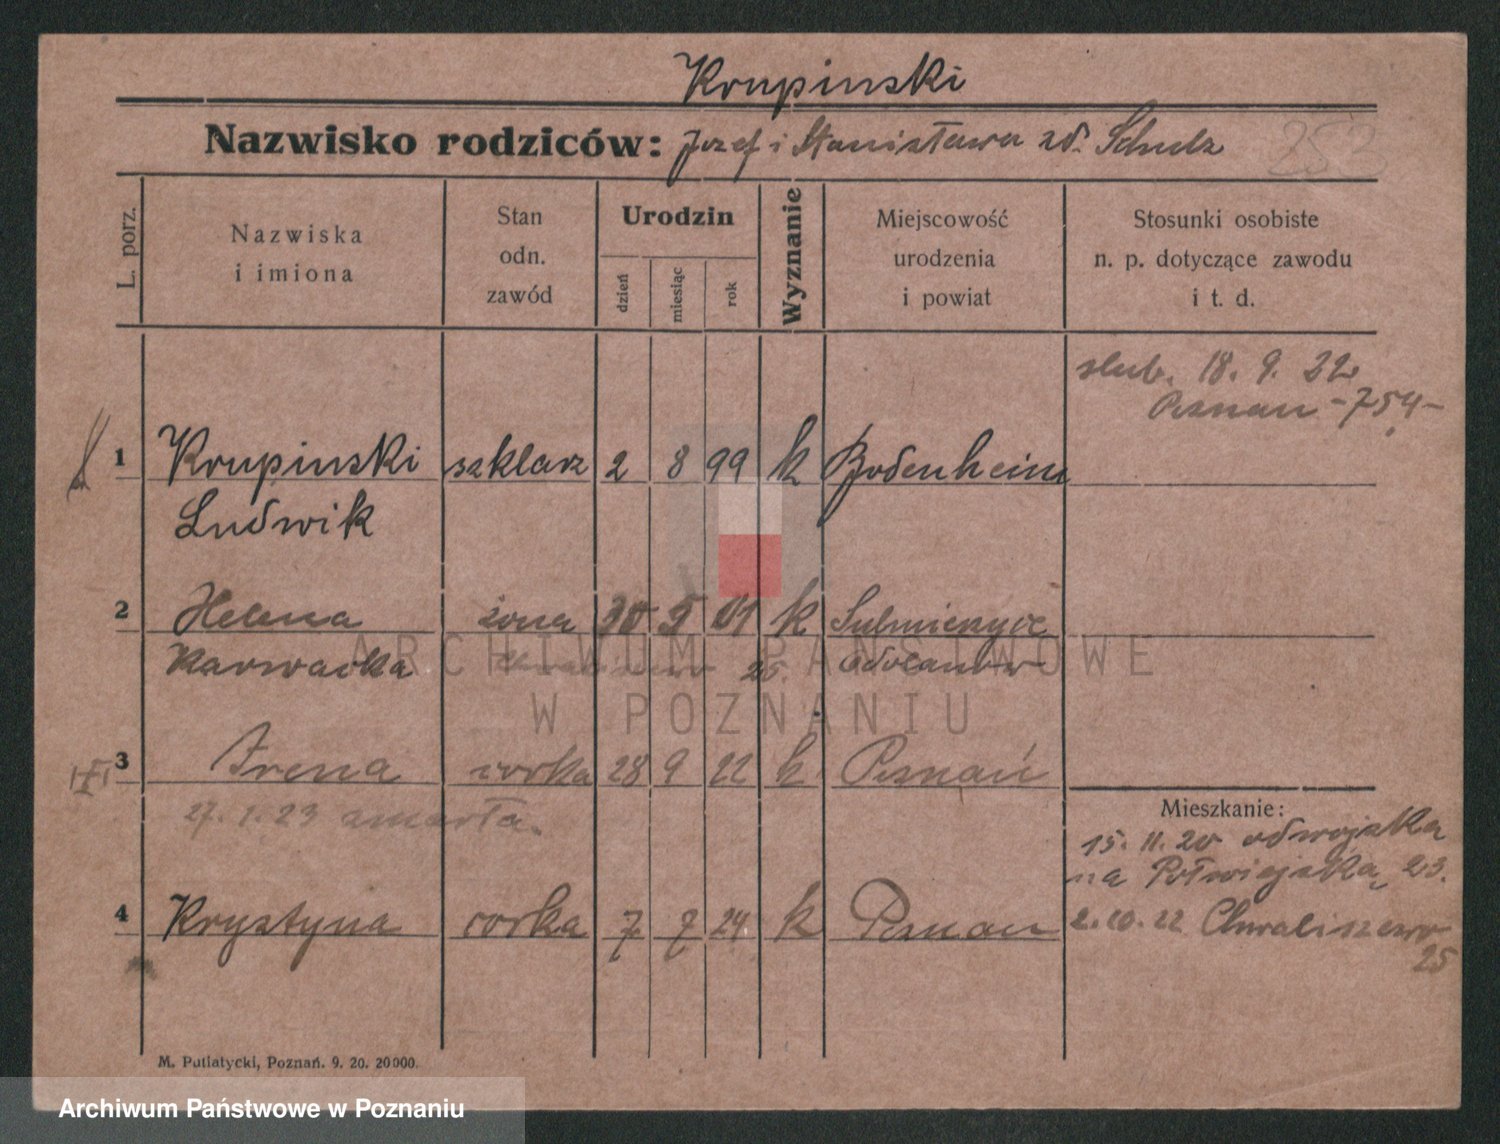 Krupinski
Nazwisko rodziców: Jozef i Stanisława zd. Schulz
252
L. porz.
Nazwiska
i imiona
Stan
odn.
zawód
Urodzin
dzień
miesiąc
rok
Wyznanie
Miejscowość
urodzenia
i powiat
Stosunki osobiste
n. p. dotyczące zawodu
i t. d.
slub. 18. 9. 22
Poznan -754-
1 Krupinski szklarz 2 8 99 k Bodenheim
Ludwik
2 Helena żona 30 5 01 k Sulmierzyce
Karwacka Chwaliszewo 25. Odolanów
ARCHIWUM PAŃSTWOWE
W POZNANIU
3 Irena corka 28 9 22 k Poznań
27. 1. 23 zmarła.
Mieszkanie:
15. 11. 20 od wojska
na Półwiejską 23.
4 Krystyna corka 7 7 24 k Poznan
2. 10. 22 Chwaliszewo
25
M. Putiatycki, Poznań. 9. 20. 20000.
Archiwum Państwowe w Poznaniu